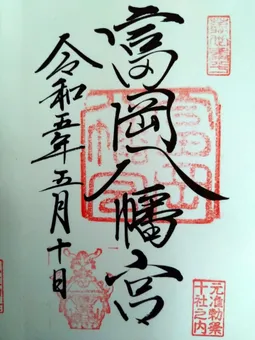 富岡八幡宮
令和五年五月十日
元准勅祭
十社之内